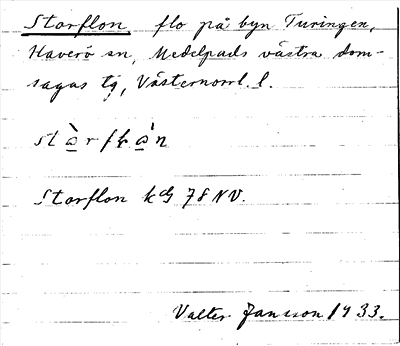 Storflon flo på byn Turingen,
Haverö sn, Medelpads västra dom-
sagas tg, Västernorrl. l.
Storflon kG 78 NV.
Valter Jansson 1933.